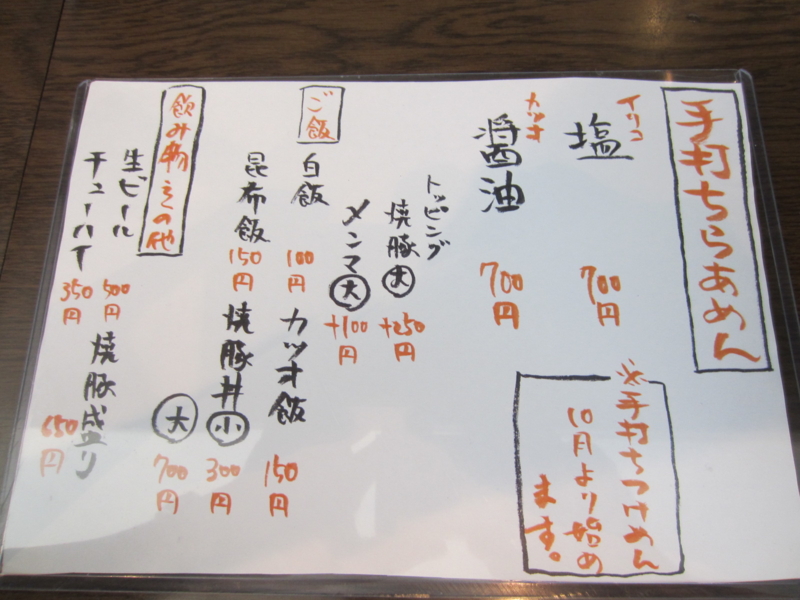 手打ちらあめん
イリコ
塩
700円
カツオ
醤油
700円
※手打ちつけめん
10月より始め
ます。
トッピング
焼豚大
+250円
メンマ大
+100円
ご飯
白飯
100円
カツオ飯
150円
昆布飯
150円
焼豚丼小
300円
大
700円
飲み物その他
生ビール
500円
チューハイ
350円
焼豚盛り
650円